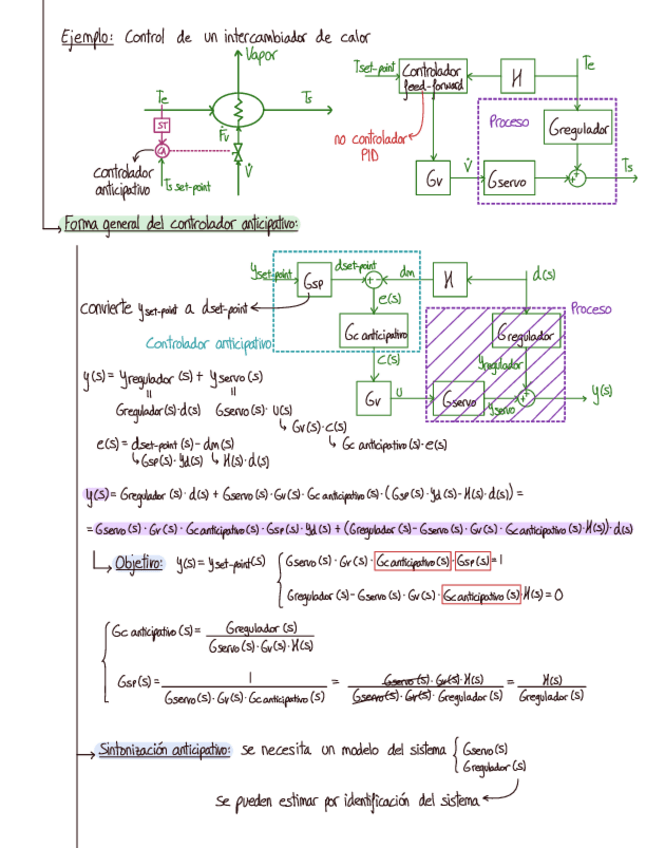 Ejemplo: Control de un intercambiador de calor
Vapor
Te
Ts
ST
Fv
CA
V̇
controlador
anticipativo
Ts set-point
Tset-point
Controlador
feed-forward
H
Te
no controlador
PID
Proceso
Gregulador
Gv
V̇
Gservo
Ts
Forma general del controlador anticipativo:
yset-point
Gsp
dset-point
dm
H
d(s)
e(s)
convierte yset-point a dset-point
Controlador anticipativo
Gc anticipativo
Proceso
Gregulador
yregulador
c(s)
Gv
U
Gservo
yservo
y(s)
y(s) = yregulador (s) + yservo (s)
Gregulador (s) · d(s) Gservo (s) · U(s)
Gv(s) · c(s)
Gc anticipativo (s) · e(s)
e(s) = dset-point (s) - dm (s)
Gsp (s) · yd (s) H(s) · d(s)
y(s) = Gregulador (s) · d(s) + Gservo (s) · Gv (s) · Gc anticipativo (s) · (Gsp (s) · yd (s) - H(s) · d(s)) =
= Gservo (s) · Gv (s) · Gc anticipativo (s) · Gsp (s) · yd (s) + (Gregulador (s) - Gservo (s) · Gv (s) · Gc anticipativo (s) · H(s)) · d(s)
Objetivo: y(s) = yset-point (s)
Gservo (s) · Gv (s) · Gc anticipativo (s) · Gsp (s) = 1
Gregulador (s) - Gservo (s) · Gv (s) · Gc anticipativo (s) · H(s) = 0
Gc anticipativo (s) = Gregulador (s) / Gservo (s) · Gv (s) · H(s)
Gsp (s) = 1 / Gservo (s) · Gv (s) · Gc anticipativo (s) = Gservo (s) · Gv (s) · H(s) / Gservo (s) · Gv (s) · Gregulador (s) = H(s) / Gregulador (s)
Sintonización anticipativo: se necesita un modelo del sistema
Gservo (s)
Gregulador (s)
se pueden estimar por identificación del sistema